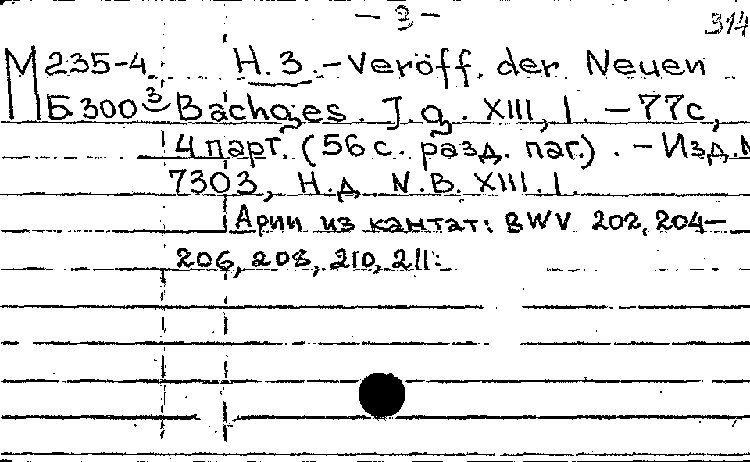 — 3 —
314
М 235-4 Н. 3. — Veröff. der Neuen
Б300 3 Bachges. J.g. XIII, 1. — 77 с,
4 парт. (56 с. разд. паг.). — Изд. N
7303, Н.д. N.B. XIII. 1.
Арии из кантат: BWV 202, 204—
206, 208, 210, 211.